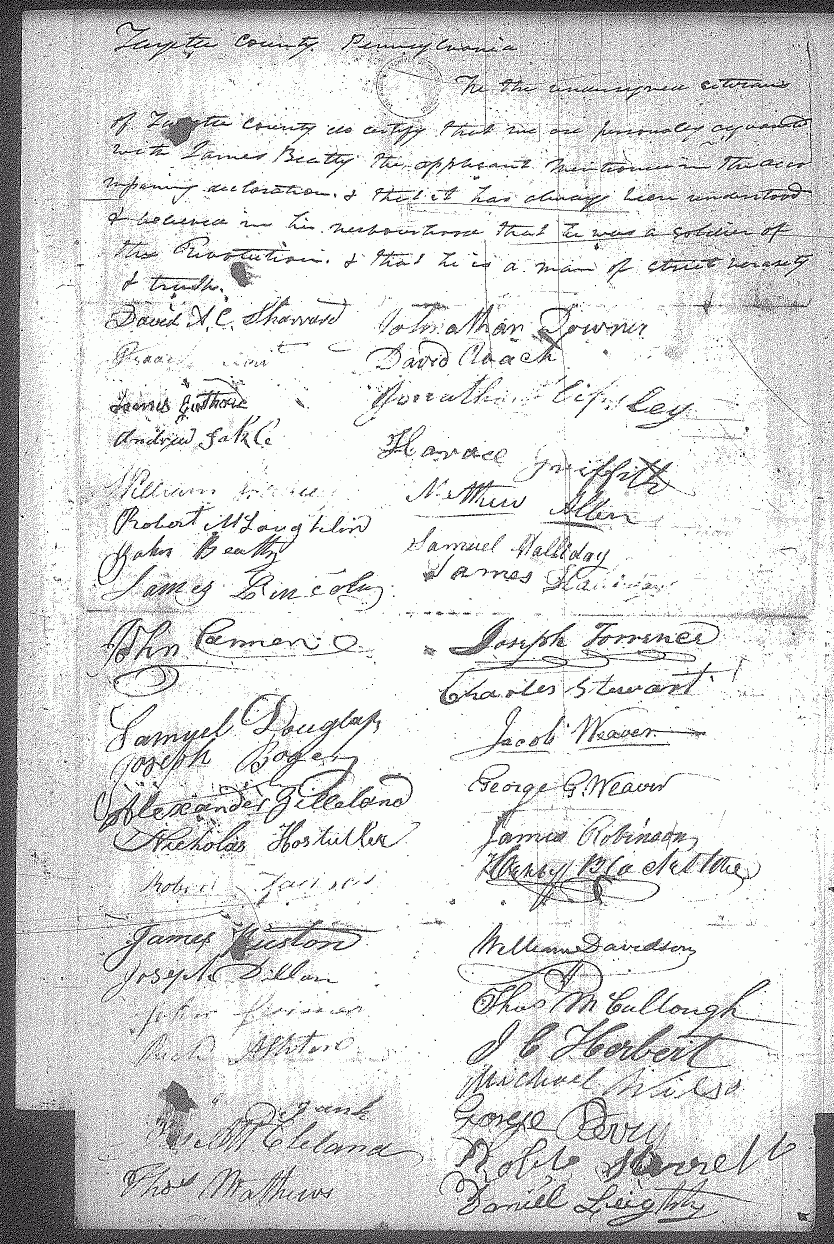 Fayette County Pennsylvania
We the undersigned citizens
of Fayette County do certify that we are personally acquainted
with James Beatty the applicant mentioned in the accom
panying declaration. & that it has always been understood
& believed in his neibourhood that he was a soldier of
the Revolution. & that he is a man of strict veracity
& truth.
David H. C. Sharrard
Isaac
James Guthrie
Andrew
William
Robert McLaughlin
John Beatty
James Lincoln
John Cameron
Samuel Douglass
Joseph Boger
Alexander Gilleland
Nicholas Hostutler
Robert Jackson
James Huston
Joseph Dillon
John
Rich Ashton
McCleland
Thos Mathews
Johnathan Downer
David Roach
Jonathan
Horace Griffith
Matthew Allen
Samuel Halliday
James
Joseph Torrence
Charles Stewart
Jacob Weaver
George G. Weaver
James Robinson
Henry Blackstone
William Davidson
Thos McCullough
J C Herbert
Michael
George Perry
Robt
Daniel Leighty